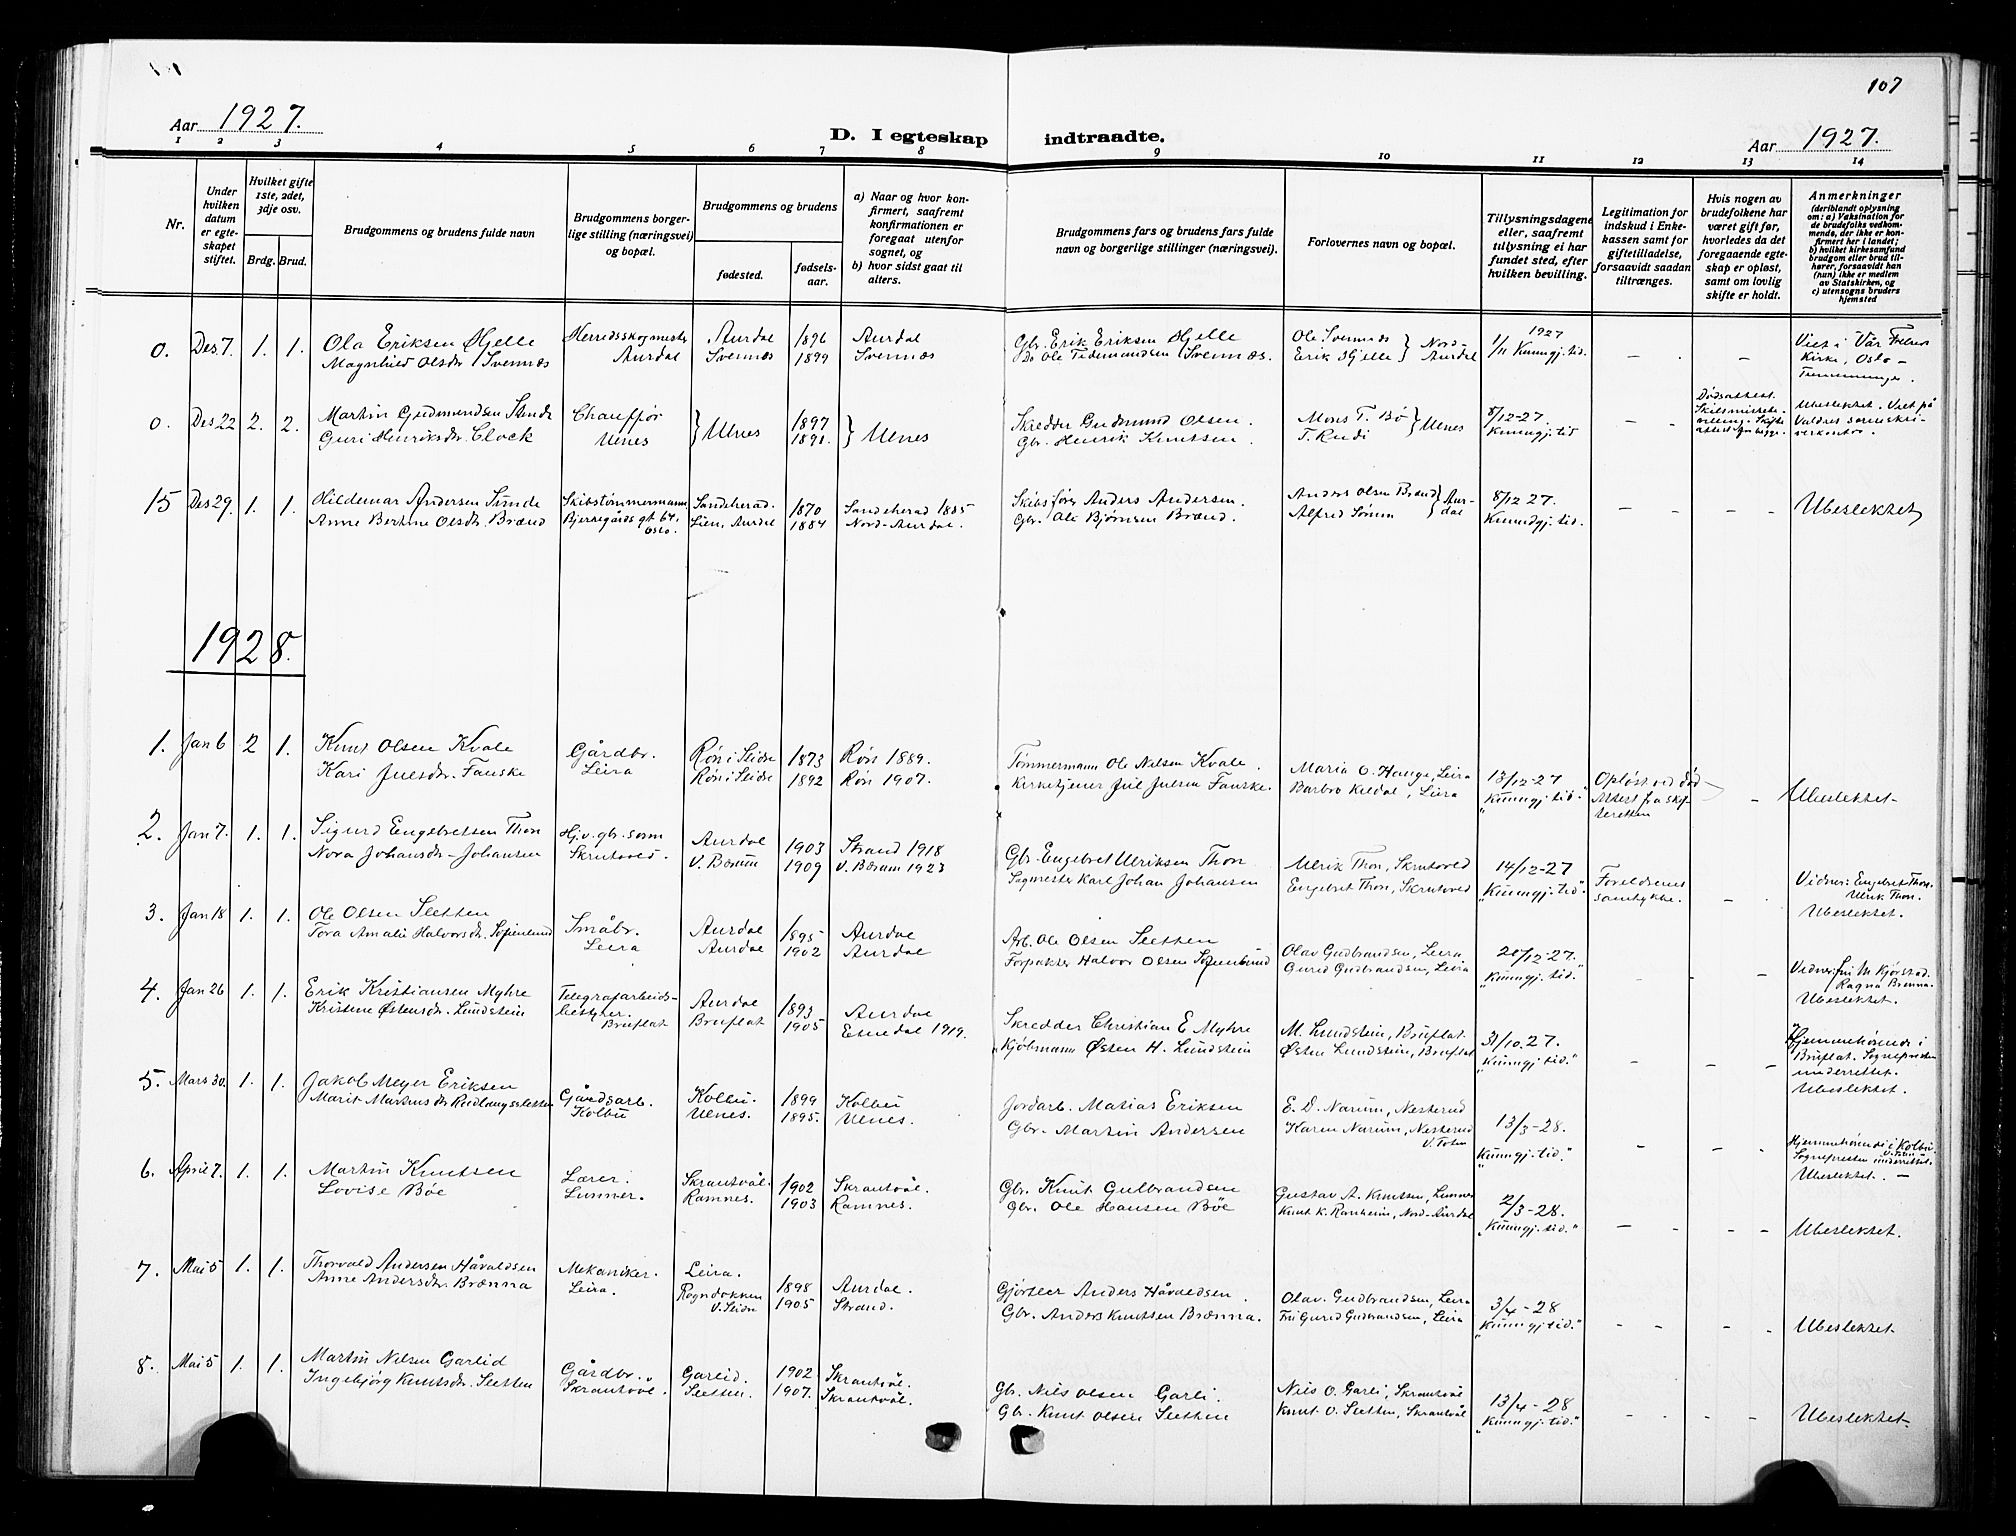 107
Aar 1927.
D. I egteskap indtraadte.
Aar 1927.
1 2 3 4 5 6 7 8 9 10 11 12 13 14
Nr.
Under hvilken datum er egteskapet stiftet.
Hvilket gifte 1ste, 2det, 3dje osv.
Brdg. Brud.
Brudgommens og brudens fulde navn
Brudgommens borgerlige stilling (næringsvei) og bopæl.
Brudgommens og brudens
fødested.
fødselsaar.
a) Naar og hvor konfirmert, saafremt konfirmationen er foregaat utenfor sognet, og
b) hvor sidst gaat til alters.
Brudgommens fars og brudens fars fulde navn og borgerlige stillinger (næringsvei).
Forlovernes navn og bopæl.
Tillysningsdagene eller, saafremt tillysning ei har fundet sted, efter hvilken bevilling.
Legitimation for indskud i Enkekassen samt for giftetilladelse, forsaavidt saadan tiltrænges.
Hvis nogen av brudefolkene har været gift før, hvorledes da det foregaaende egteskap er opløst, samt om lovlig skifte er holdt.
Anmerkninger (deriblandt oplysning om: a) Vaksination for de brudefolks vedkommende, der ikke er konfirmert her i landet; b) hvilket kirkesamfund brudgom eller brud tilhører, forsaavidt han (hun) ikke er medlem av Statskirken, og c) utensogns bruders hjemsted
0. Des 7 1. 1. Ola Eriksen Hjelle Herredsskogmester Aurdal 1896 Aurdal Gbr. Erik Eriksen Hjelle Ole Svennæs } Nord- 1927 Viet i Vår Frelsers
Magnhild Olsdr. Svennæs Aurdal Svennæs 1899 Svennæs Do Ole Tidemundsen Svennæs. Erik Hjelle } Aurdal 1/11 Kunngj. tid. - - Kirke, Oslo -
0. Des 22 2. 2. Martin Gudmundsen Chauffør } Ulnes 1897 } Ulnes Skredder Gudmund Olsen. Mons T. Bø } Ulnes 8/12-27. - - Dødsattest. Ubeslektet. Viet på
Guri Henriksdr. Clock Ulnes 1890. Gbr. Henrik Knutsen. T. Rudi Kunngj. tid Valdres sorenskriverkontor.
15 Des 29. 1. 1. Hildemar Andersen Sunde Skibstømmermann Sandeherad. 1870 Sandeherad 1885 Skibsfører Anders Andersen. Anders Olsen Brænd } Aur- 8/12 27. - - - - Ubeslektet
Anne Bertine Olsdr. Brænd Bjerregårds gt 64, Oslo. Lien, Aurdal 1884 Nord-Aurdal. Gbr. Ole Bjørnsen Brænd. Alfred Sørum } dal Kunndgj. tid.
1928.
1. Jan 6 2 1. Knut Olsen Kvale Gårdbr. Røn i Slidre 1873 Røn 1889. Tømmermann Ole Nilsen Kvale. Maria O. Hauge, Leira 13/12-27 Opløst ved død - Ubeslektet.
Kari Julsdr. Fauske Leira Røn i Slidre 1892 Røn 1907. Kirketjener Jul Julsen Fauske. Barbro Kildal, Leira "Kunngj. tid." Attest fra skifteretten
2. Jan 7. 1. 1. Sigurd Engebretsen Thon Hj. v. gbr. sønn Aurdal 1903 Strand 1918 Gbr. Engebret Ulriksen Thon Ulrik Thon, Skrutvold 14/12-27 Foreldrenes Vidner: Engebret Thon.
Nora Johansdr. Johansen Skrutvold. V. Bærum 1909 V. Bærum 1923 Sagmester Karl Johan Johansen Engebret Thon, Skrutvold "Kunngj. tid." samtykke. - Ulrik Thon.
Ubeslektet.
3. Jan 18 1. 1. Ole Olsen Sletten Småbr. Aurdal 1895 Aurdal Arb. Ole Olsen Sletten Olav Gudbrandsen, Leira 20/12-27. - - Vidner: Fri M Kjørstad.
Tora Amalie Halvorsdr. Sofienlund Leira Aurdal 1902 Aurdal Forpakter Halvor Olsen Sofienlund Gurid Gudbrandsen, Leira "Kunngj. tid." Ragna Brenna.
Ubeslektet.
4. Jan 26 1. 1. Erik Kristiansen Myhre Telegrafarbeids- Aurdal 1893 Aurdal Skredder Christian E. Myhre M. Lundstein, Bruflat. 31/10.27. - - Hjemmehørende i
Kristine Østensdr. Lundstein bestyrer. Bruflat Bruflat 1905 Etnedal 1919. Kjøbmann Østen H. Lundstein Østen Lundstein, Bruflat "Kunngj. tid." Bruflat. Sognepresten underrettet.
Ubeslektet.
5. Mars 30. 1. 1. Jakob Meyer Eriksen Gårdsarb. Kolbu. 1899 Kolbu Jordarb. Matias Eriksen E. D. Narum, Nesterud 13/3-28. - - Hjemmehørende i Kolbu V. Toten
Marit Martinsdr. Kolbu Ulnes. 1895. Ulnes. Gbr. Martin Andersen Karen Narum, Nesterud V. Toten "Kunngj. tid." Sognepresten underrettet.
Ubeslektet. -
6. April 7. 1. 1. Martin Knutsen Lærer. Skrautvål. 1902 Skrautvål. Gbr. Knut Gulbrandsen Gustav A. Knutsen, Lunner 2/3-28. - - - Ubeslektet.
Lovise Bøe Lunner. Ramnes. 1903 Ramnes. Gbr. Ole Hansen Bøe Knut K. Ranheim, Nord-Aurdal "Kunngj. tid."
7. Mai 5 1. 1. Thorvald Andersen Håvaldsen Mekaniker. Leira. 1898 Aurdal. Gjørtler Anders Håvaldsen. Olav. Gudbrandsen, Leira 3/4-28 - - - - Ubeslektet.
Anne Andersdr. Brenna Leira. Rogndokken V. Slidre 1905 Strand. Gbr. Anders Knutsen Brenna. Fri Gurid Gudbrandsen, Leira "Kunngj. tid."
8. Mai 5 1. 1. Martin Nilsen Garlid Gårdbr. Garlid. 1902 Skrautvål. Gb. Nils Olsen Garli. Nils O. Garli, Skrautvål 13/4-28 - - - - Ubeslektet.
Ingebjørg Knutsdr. Sletten Skrautvål. Sletten. 1907. Skrautvål. Gbr. Knut Olsen Sletten Knut O. Sletten, Skrautvål "Kunngj. tid."